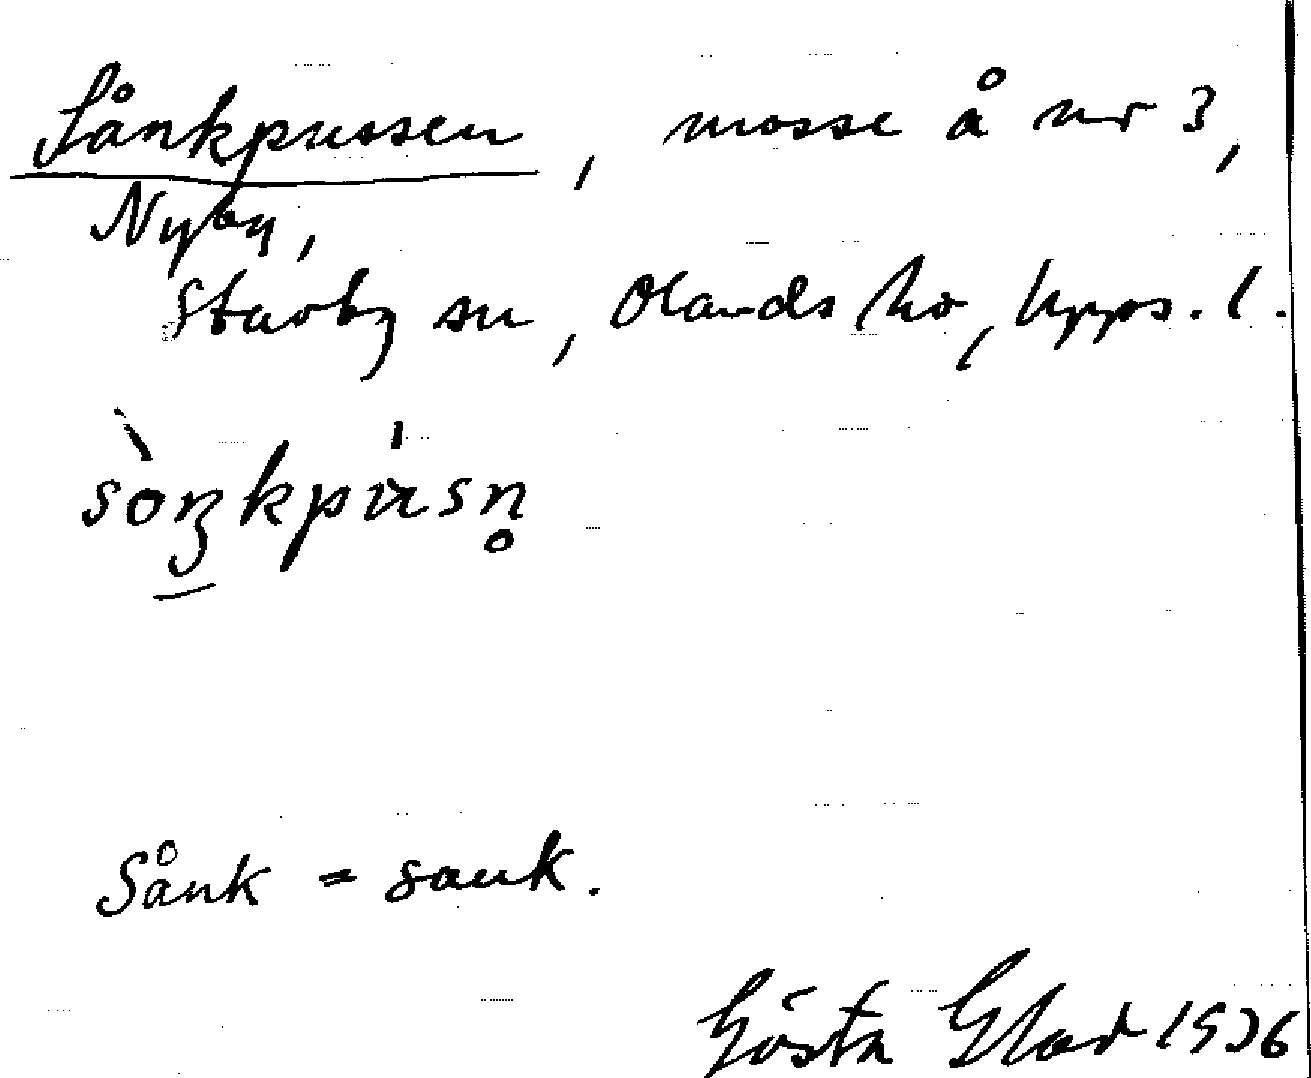 Sånkpussen, mosse å nr 3,
Nyby,
Stavby sn, Olands hd, Upps. l.
sòŋkpùsn̥
Sånk = sank.
Gösta Glad 1936